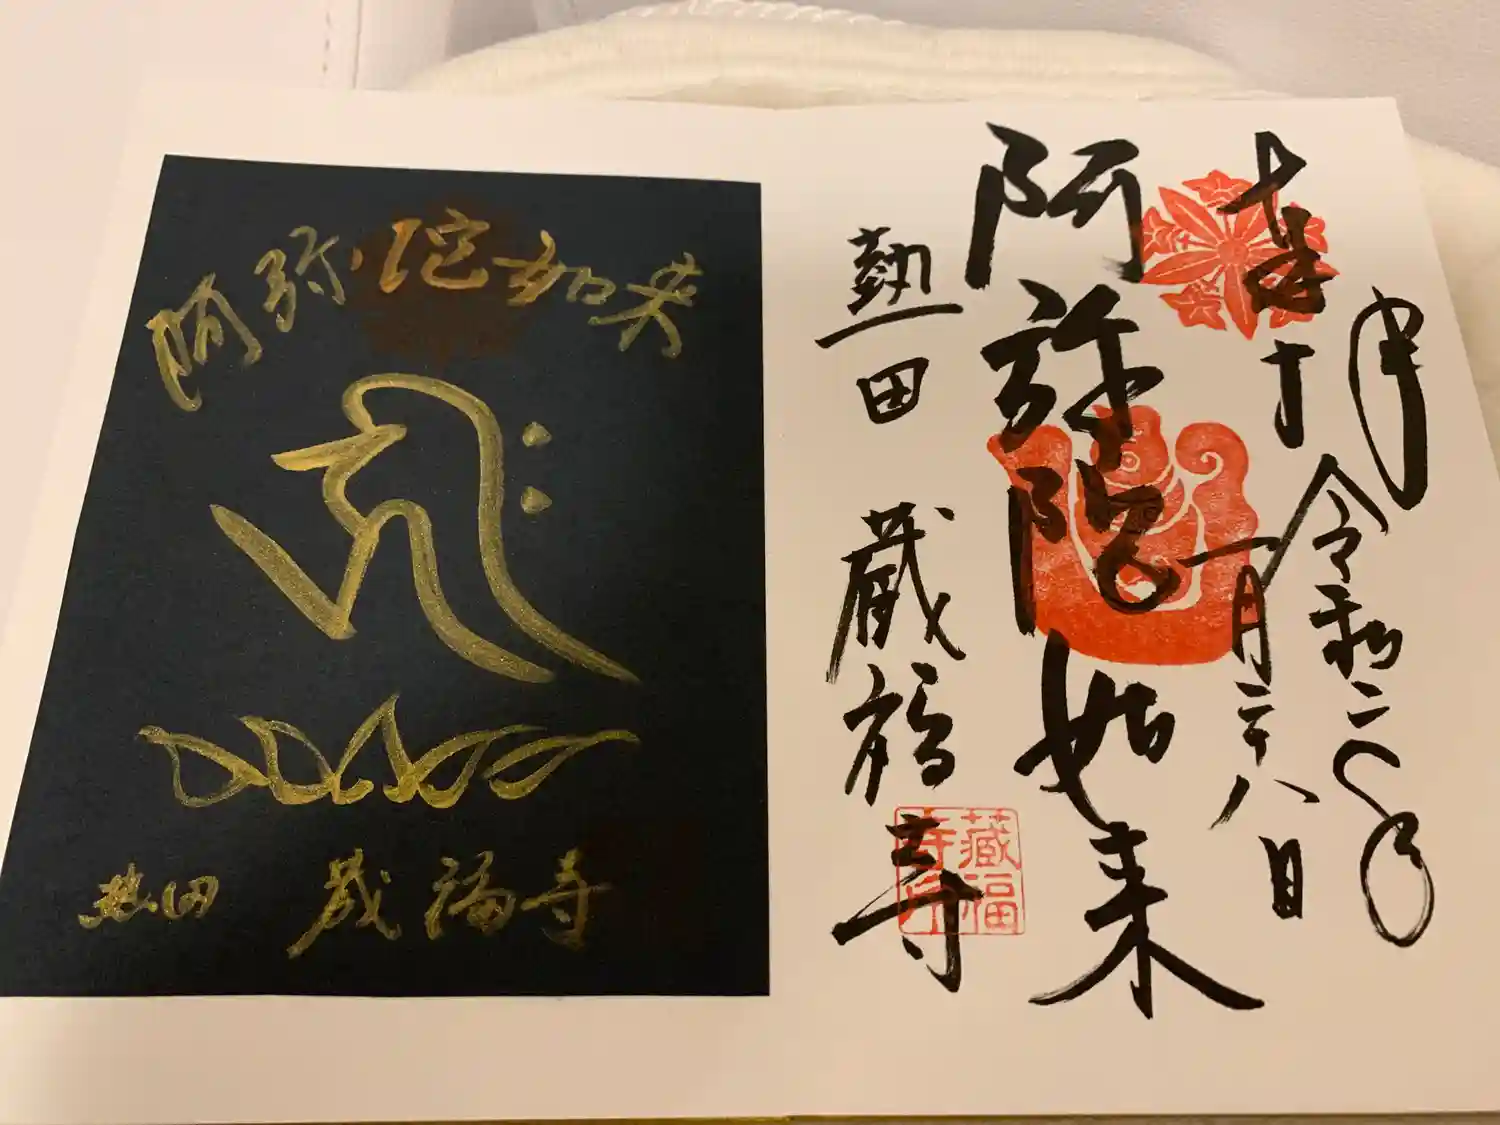 奉拝
令和二年
一月二十八日
阿弥陀如来
熱田 蔵福寺
藏福
寺印
阿弥陀如来
𑖮𑖿𑖨𑖱𑖾
熱田 蔵福寺